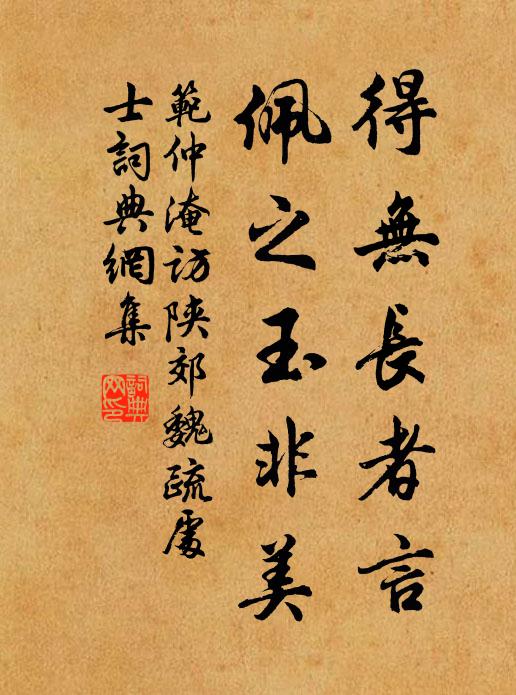 得無長者言
佩之玉非美
範仲淹訪陝郊魏疏處
士詞典網集
詞典
网印